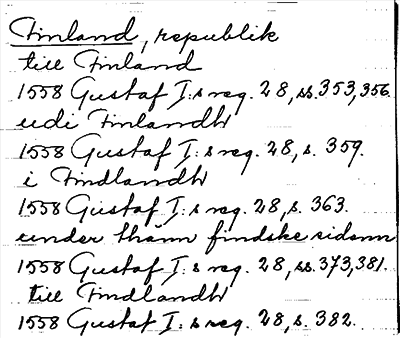 Finland, republik
till Finland
1558 Gustaf I:s reg. 28, ss. 353, 356.
udi Finlandh
1558 Gustaf I:s reg. 28, s. 359.
i Findlandh
1558 Gustaf I:s reg. 28, s. 363.
under thänn findske sidonn
1558 Gustaf I:s reg. 28, ss. 373, 381.
till Findlandh
1558 Gustaf I:s reg. 28, s. 382.